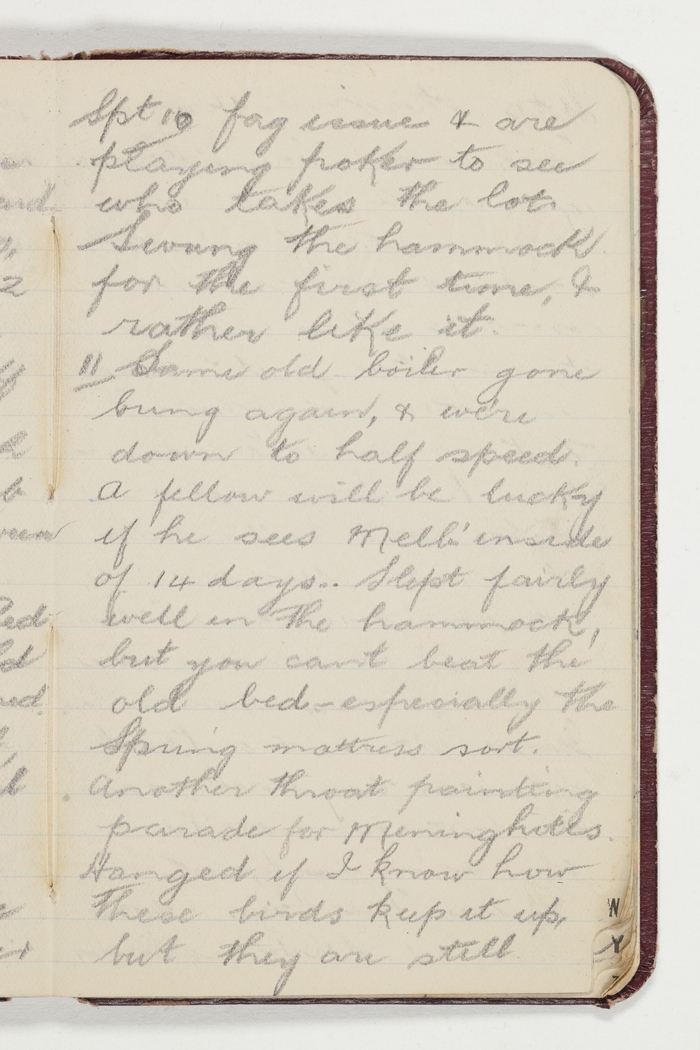 Spt 10 fag issue & are
playing poker to see
who takes the lot.
Swung the hammock
for the first time, &
rather like it.
11 Same old boiler gone
bung again, & we're
down to half speed.
A fellow will be lucky
if he sees Melb' inside
of 14 days.. Slept fairly
well in the hammock,
but you can't beat the
old bed - especially the
Spring mattress sort.
Another throat painting
parade for
Hanged if I know how
these birds keep it up,
but they are still
N
Y